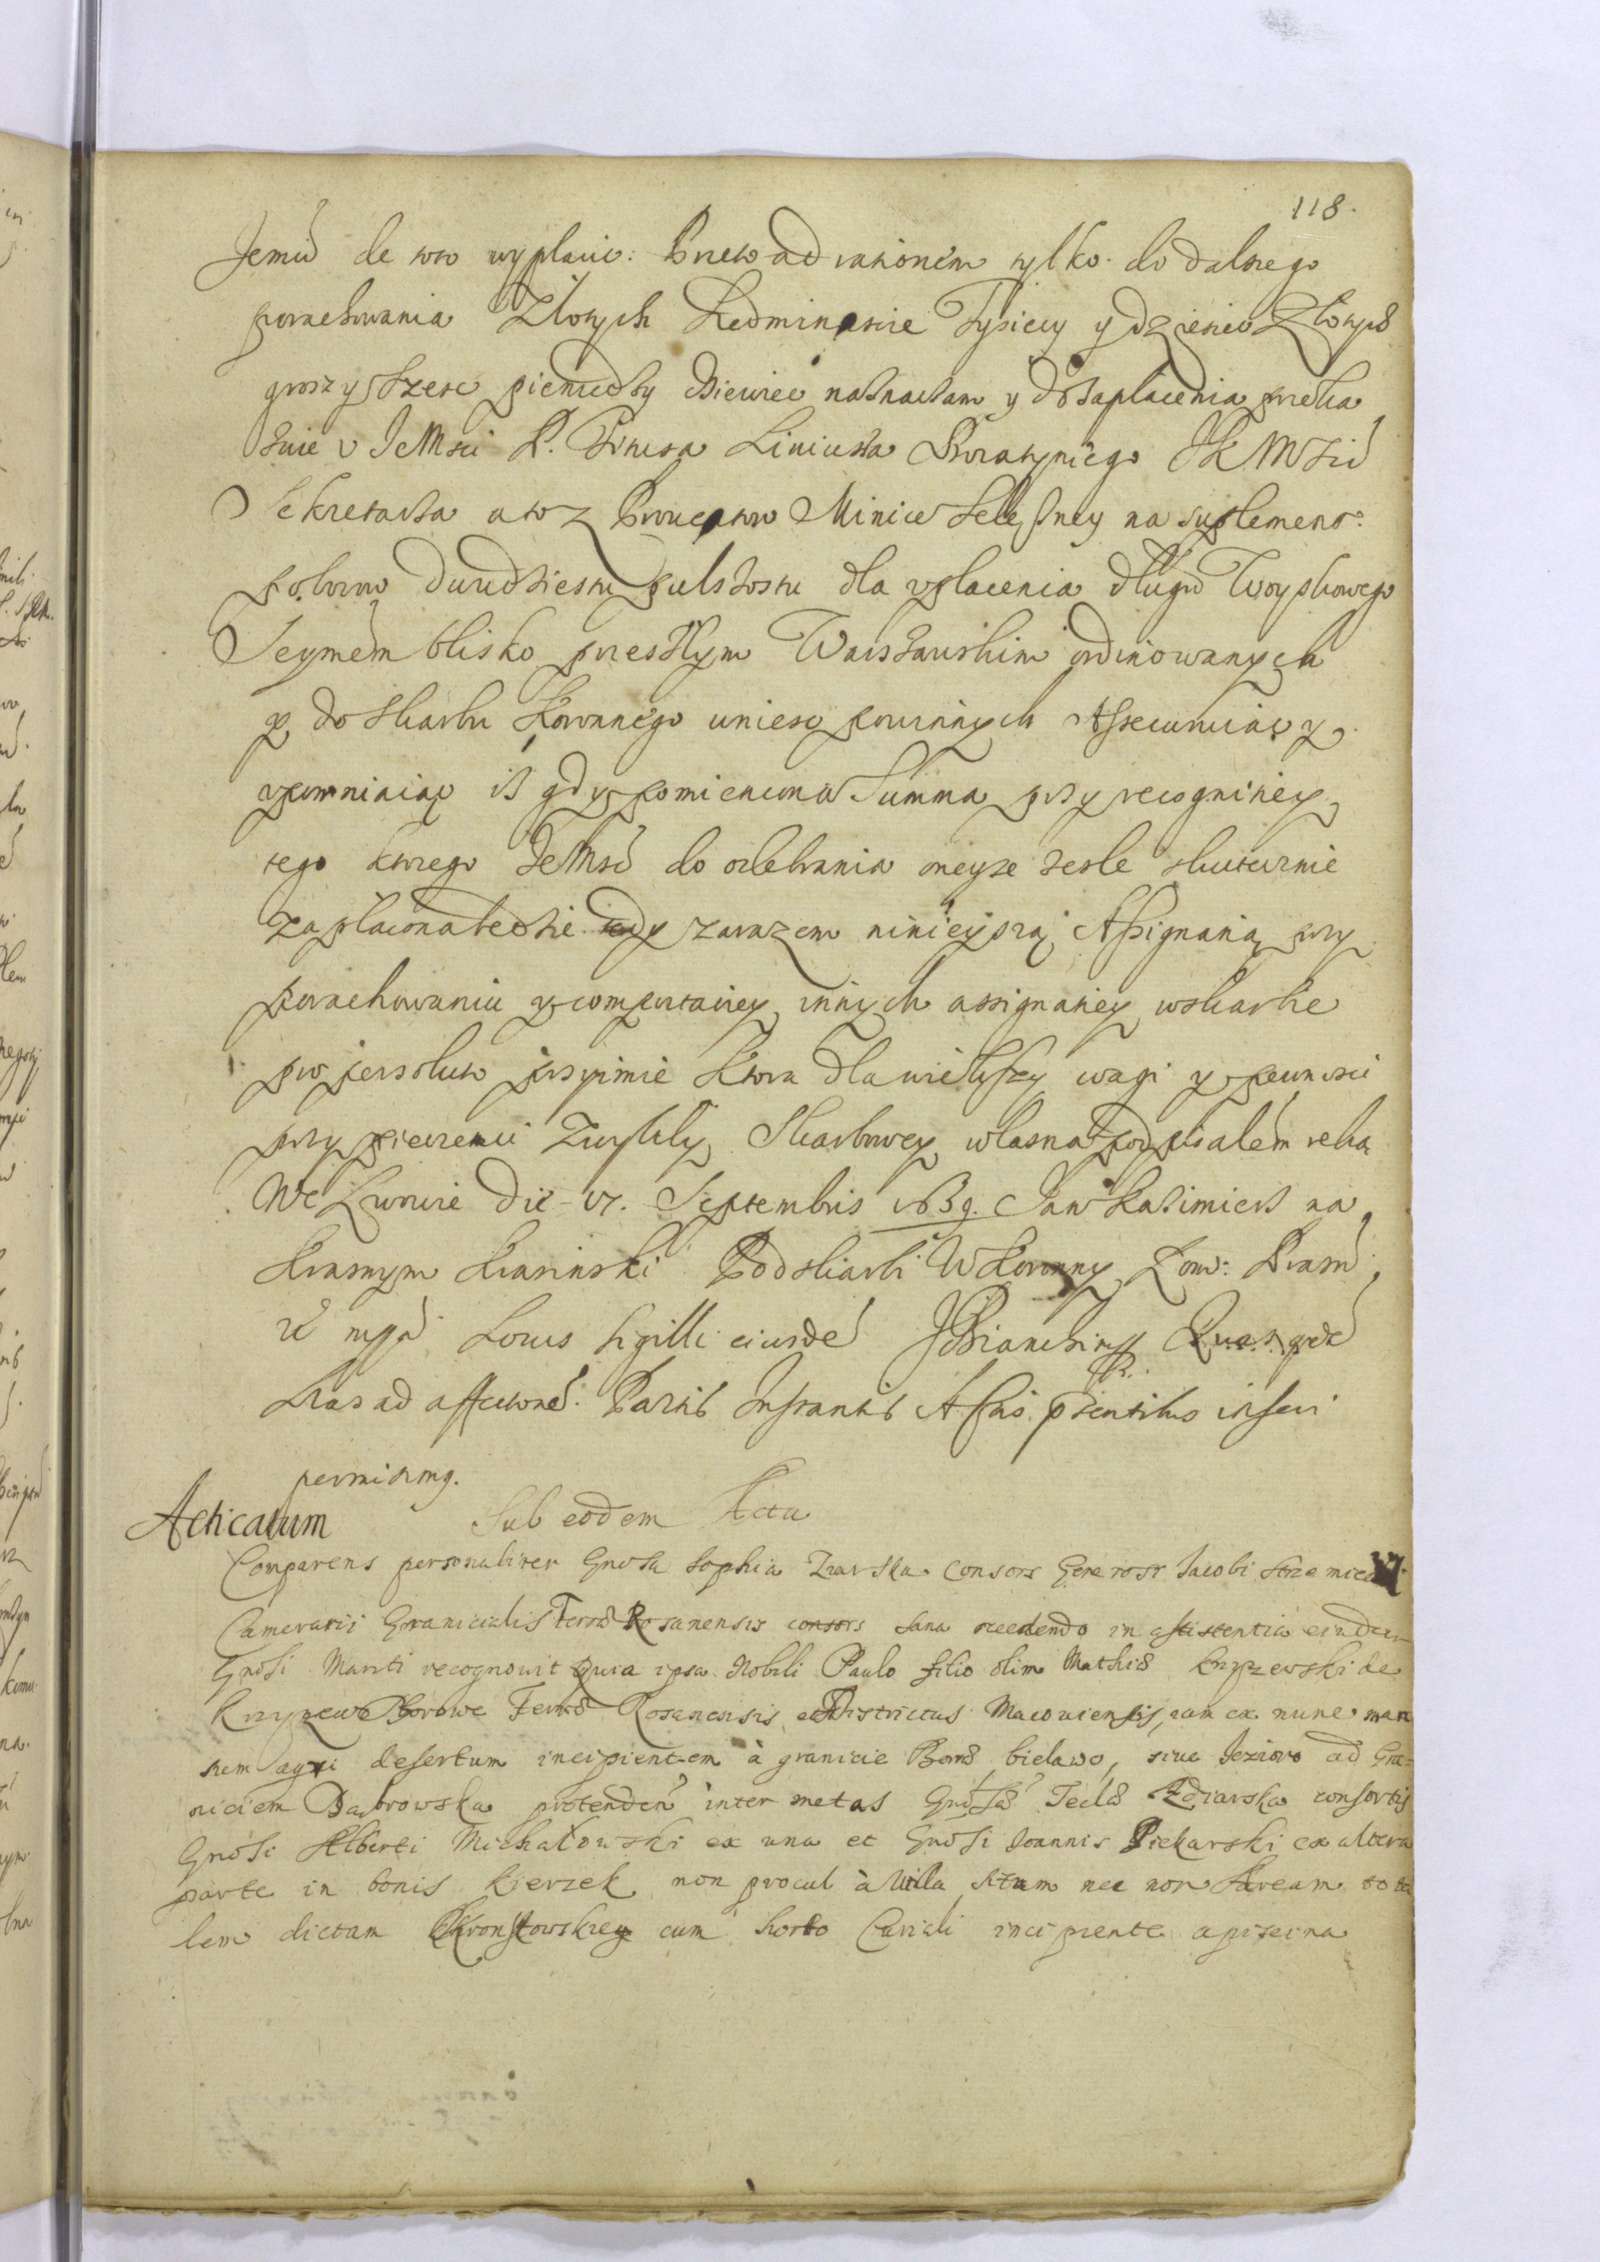 118.
Jemu de wyplacic: Przeto ad rationem tylko do dalszego
porachowania Złotych siedminascie Tysięcy y dziesiec Złotych
groszy szesc pieniedzy dziewiec naznaczam y do zaplacenia przeka
zuie v JeMsci P. Liniusza JKMsci
Sekretarza a to z Prowentow Minice na suplement:
poborow dwudziestu pultoru dla vplacenia długu Woyskowego
Seymem blisko przeszlym Warszawskim ordinowanych
y do skarbu Koronnego uniesc powinnych Assecuruiąc y
vpewniaiąc iż gdy pomieniona Summa przy recogniciey
tego ktorego JeMsc do odebrania oneyze zesle skutecznie
zaplacona bedzie tedy zarazem ninieyszą Assignatią przy
porachowaniu y comportaciey innych assignaciey w skarbie
pro persoluto przyimie Ktora dla wiekszey wagi y pewnosci
przy pieczeci Zwykley Skarbowey własną podpisalem reką
We Lwowie die 17. Septembris 1659. Jan Kazimierz na
Krasnym Krasinski Podskarbi WKoronny Prasn
mpp Locus sigilli eiusdem JBianchimpp Quas qdem
Lras ad affectatione Partis Instantis Actis pntibus inseri
permisimq.
Acticatum Sub eodem Actu
Comparens personaliter Gnosa Sophia Zdziarska Consors Generosi Jacobi Strzemiecz
Camerarii Granicialis Terrae Rosanensis consors sana accedendo in assistentia eiusdem
Gnosi Mariti recognovit Quia ipsa Nobili Paulo filio olim Mathiae Krzyzewski de
Krzyzewo Borowe Terrae Rosanensis et Districtus Macoviensis, iam ex nunc man
sum agri desertum incipientem à granicie Bonorum bielawo, siue Jezioro ad Gra=
niciem Dąbrowska protenden inter metas Gnosae Teclae Zdziarska consortis
Gnosi Alberti Michałowski ex una et Gnosi Joannis Piekarski ex altera
parte in bonis Kierzek non procul à Villa situm nec non Aream tota
lem dictam Chronstowskiey cum horto Curiali incipiente a piscina